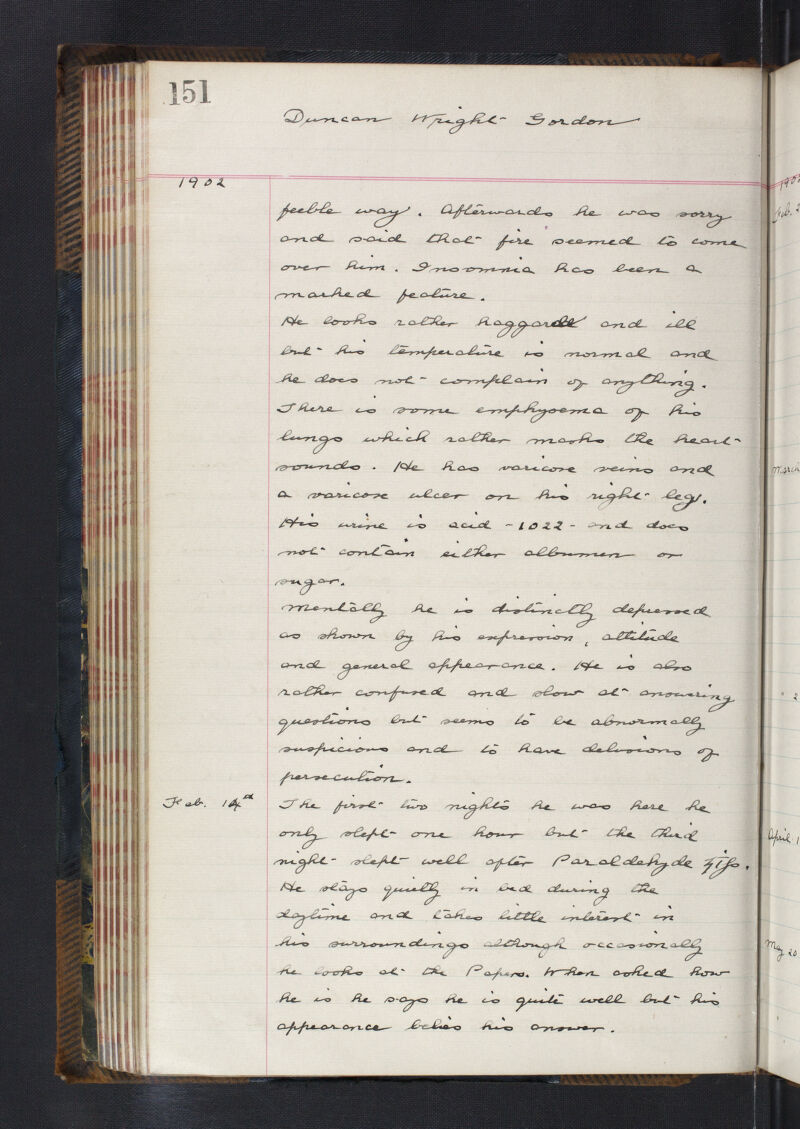 151
Duncan Wright Gordon
1902
feeble way. Afterwards he was sorry
and said that fire seemed to come
over him. Insomnia has been a
marked feature.
He looks rather haggard and ill
but his temperature is normal and
he does not complain of anything.
There is some emphysema of his
lungs which rather masks the heart
sounds. He has varicose veins and
a varicose ulcer on his right leg.
His urine is acid - 1022 - and does
not contain either albumen or
sugar.
Mentally he is distinctly depressed
as shown by his expression, attitude
and general appearance. He is also
rather confused and slow at answering
questions but seems to be abnormally
suspicious and to have delusions of
persecution.
Feb. 14th The first two nights he was here he
only slept one hour but the third
night slept well after Paraldehyde ʒiſs.
He stays quietly in bed during the
daytime and takes little interest in
his surroundings although occasionally
he looks at the Papers. When asked how
he is he says he is quite well but his
appearance belies his answer.
1902
Feb. 2
March
" 2
April 1
May 20